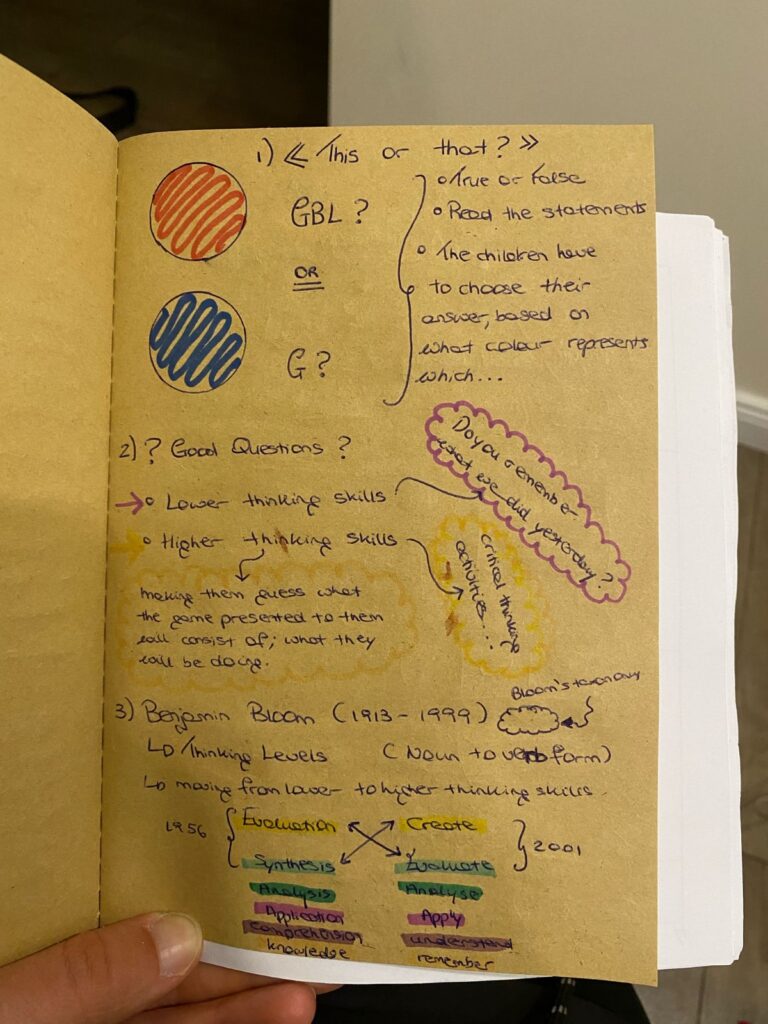 1) « This or that? »
GBL?
OR
G?
o True or False
o Read the statements
o The children have
to choose their
answer, based on
what colour represents
which...
2) ? Good Questions ?
→ o Lower thinking skills
Do you remember
what we did yesterday?
→ o Higher thinking skills
critical thinking
activities...
making them guess what
the game presented to them
will consist of; what they
will be doing.
Bloom's taxonomy
3) Benjamin Bloom (1913-1999)
Thinking Levels (Noun to verb form)
moving from lower to higher thinking skills.
1956
Evaluation
Synthesis
Analysis
Application
comprehension
knowledge
Create
Evaluate
Analyse
Apply
understand
remember
2001